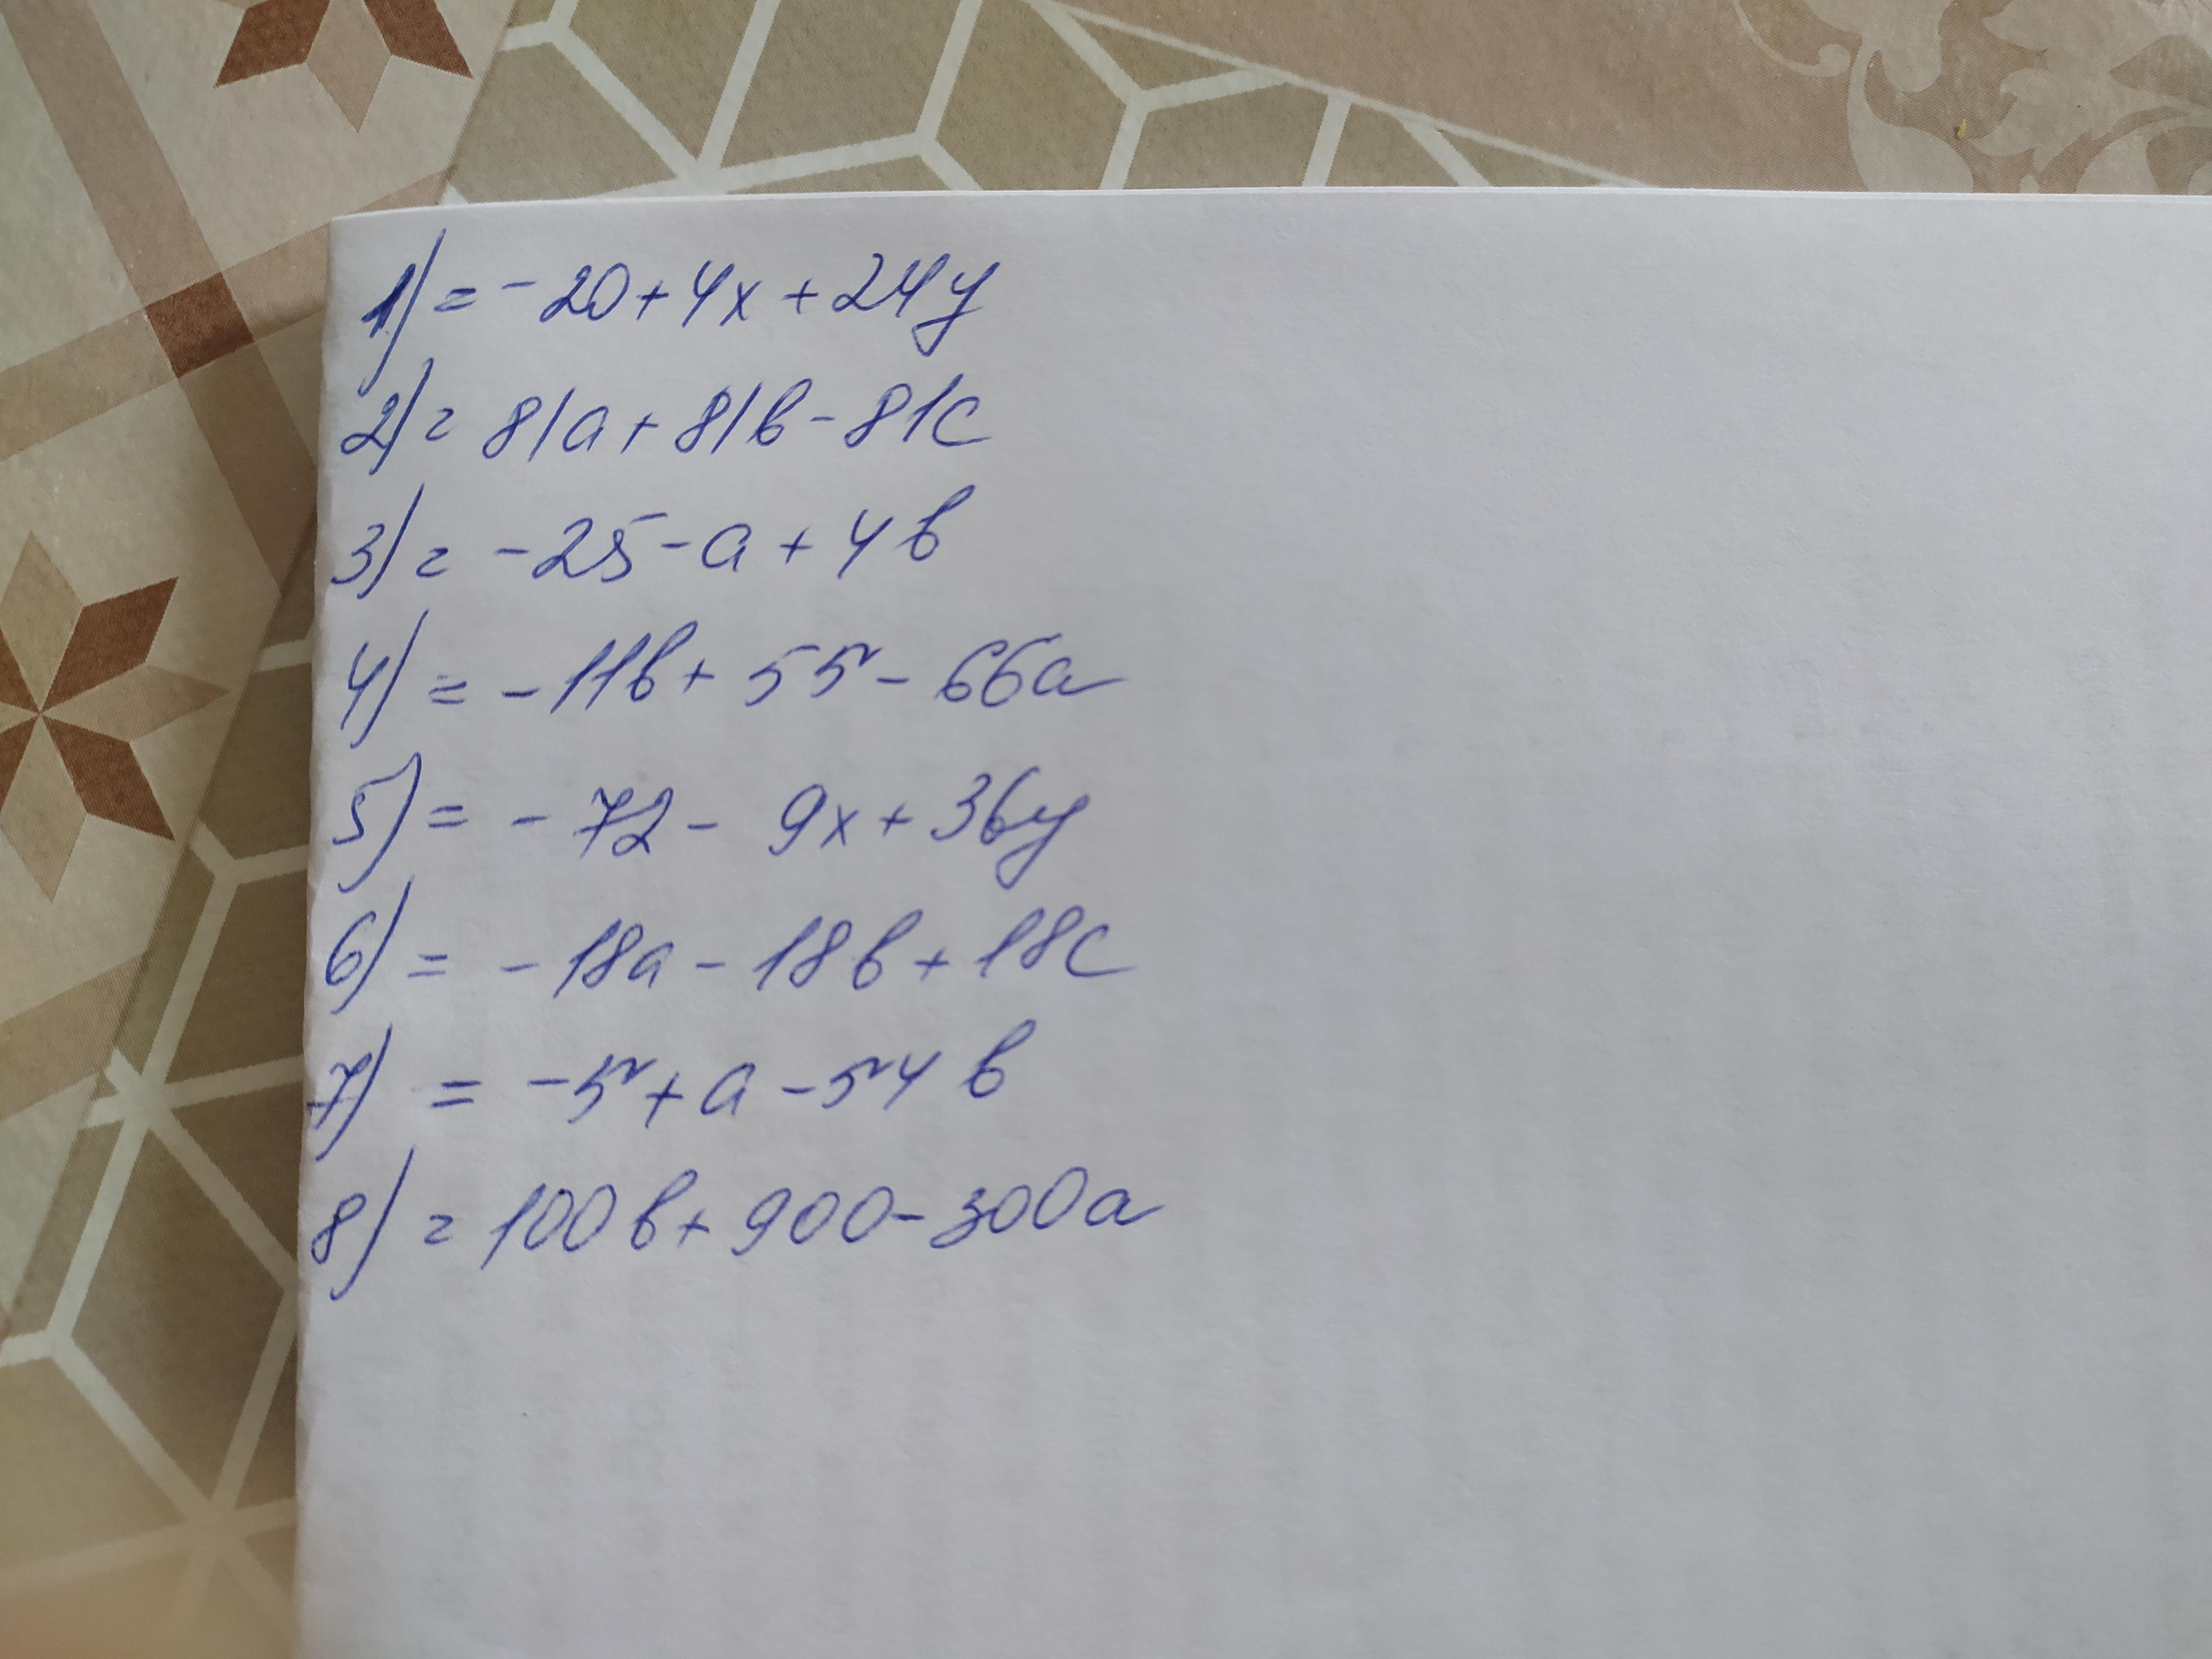 1) = -20 + 4x + 24y
2) = 81a + 81b - 81c
3) = -25 - a + 4b
4) = -11b + 55 - 66a
5) = - 72 - 9x + 36y
6) = - 18a - 18b + 18c
7) = -5 + a - 54b
8) = 100b + 900 - 300a